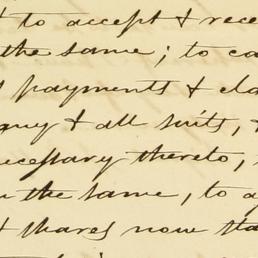 to accept & rece
the same; to co
payments & cla
any & all suits, &
necessary thereto,
the same, to a
& shares now sta